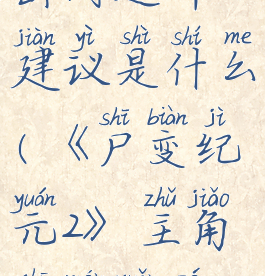 jiàn yì shì shí me
建议是什么
shī biàn jì
(《尸变纪
yuán zhǔ jiǎo
元2》 主角